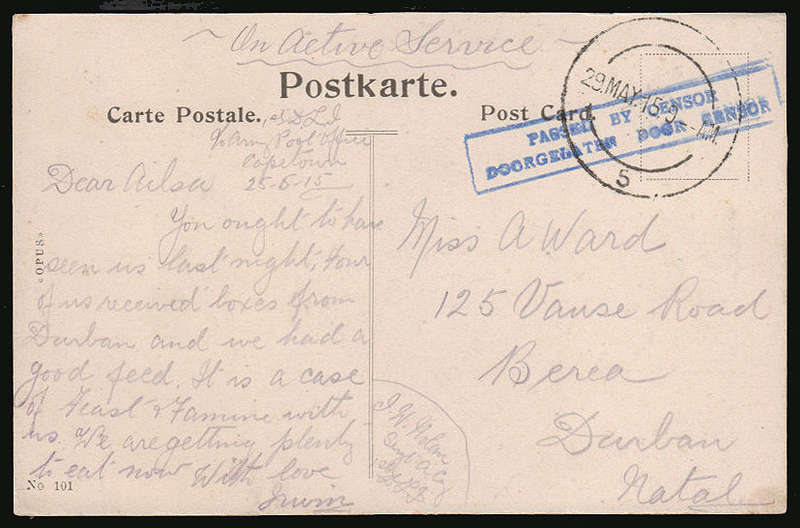 ~ On Active Service ~
Postkarte.
Carte Postale.
Post Card.
29.MAY.15.9 - AM.
5
PASSED BY CENSOR
DOORGELATEN DOOR SENSOR
Army Post Office
Capetown
Dear Ailsa 25-5-15
You ought to have
seen us last night, Four
of us received boxes from
Durban and we had a
good feed. It is a case
of Feast & Famine with
us. We are getting plenty
to eat now With love
Irwin
Miss A Ward
125 Vause Road
Berea
Durban
Natal
«OPUS»
No 101